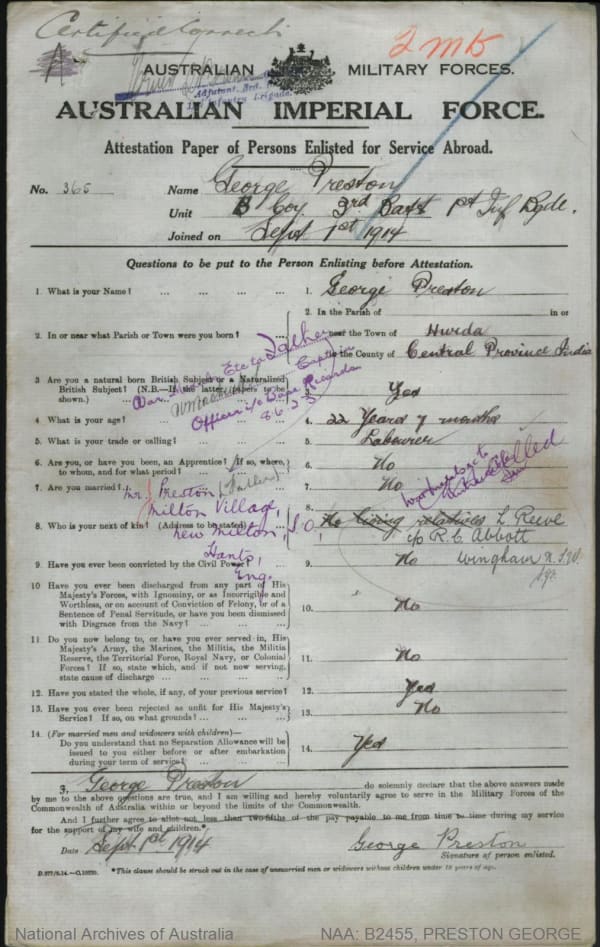 Certified correct
2 MD
AUSTRALIAN MILITARY FORCES.
Adjutant, 3rd
Infantry Brigade.
AUSTRALIAN IMPERIAL FORCE.
Attestation Paper of Persons Enlisted for Service Abroad.
No. 365 Name George Preston
Unit B Coy 3rd Batt 1st Inf Bgde.
Joined on Sept 1st 1914
Questions to be put to the Person Enlisting before Attestation.
1. What is your Name? ... 1. George Preston
2. In or near what Parish or Town were you born? ... 2. In the Parish of in or
near the Town of Hurda
in the County of Central Province India
3. Are you a natural born British Subject or a Naturalized
British Subject? (N.B.—If the latter, papers to be
shown.) ... 3. Yes
War Etc to Father
Captain
Officer i/c Base Records
8.6.23
4. What is your age? ... 4. 22 Years 7 months
5. What is your trade or calling? ... 5. Labourer
6. Are you, or have you been, an Apprentice? If so, where,
to whom, and for what period? ... 6. No
7. Are you married? ... 7. No
Mr J Preston (Father)
Milton Village,
New Milton, S.O
Hants,
Eng.
8. Who is your next of kin? (Address to be stated) 8. No living relatives L Reeve
c/o R. C. Abbott
Wingham N.S.W.
9. Have you ever been convicted by the Civil Power? 9. No
10 Have you ever been discharged from any part of His
Majesty's Forces, with Ignominy, or as Incorrigible and
Worthless, or on account of Conviction of Felony, or of a
Sentence of Penal Servitude, or have you been dismissed
with Disgrace from the Navy? ... 10. No
11 Do you now belong to, or have you ever served in, His
Majesty's Army, the Marines, the Militia, the Militia
Reserve, the Territorial Force, Royal Navy, or Colonial
Forces? If so, state which, and if not now serving,
state cause of discharge ... 11. No
12. Have you stated the whole, if any, of your previous service? 12. Yes
13. Have you ever been rejected as unfit for His Majesty's
Service? If so, on what grounds? ... 13. No
14. (For married men and widowers with children)—
Do you understand that no Separation Allowance will be
issued to you either before or after embarkation
during your term of service? ... 14. Yes
I, George Preston do solemnly declare that the above answers made
by me to the above questions are true, and I am willing and hereby voluntarily agree to serve in the Military Forces of the
Commonwealth of Australia within or beyond the limits of the Commonwealth.
And I further agree to allot not less than two-fifths of the pay payable to me from time to time during my service
for the support of my wife and children.*
Date Sept 1st 1914 George Preston
Signature of person enlisted.
*This clause should be struck out in the case of unmarried men or widowers without children under 18 years of age.
National Archives of Australia NAA: B2455, PRESTON GEORGE